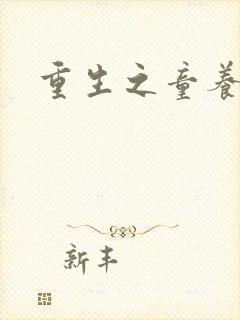 重生之童养
新丰